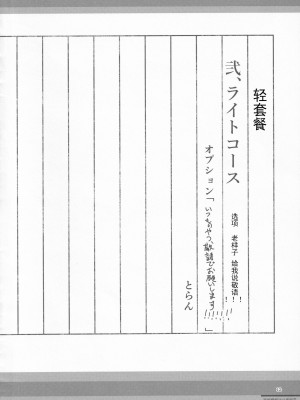 轻套餐
弐、ライトコース
选项 老样子 给我说敬语!!
オプション「いつものやつ、敬語でお願いします!!!!!」
とらん